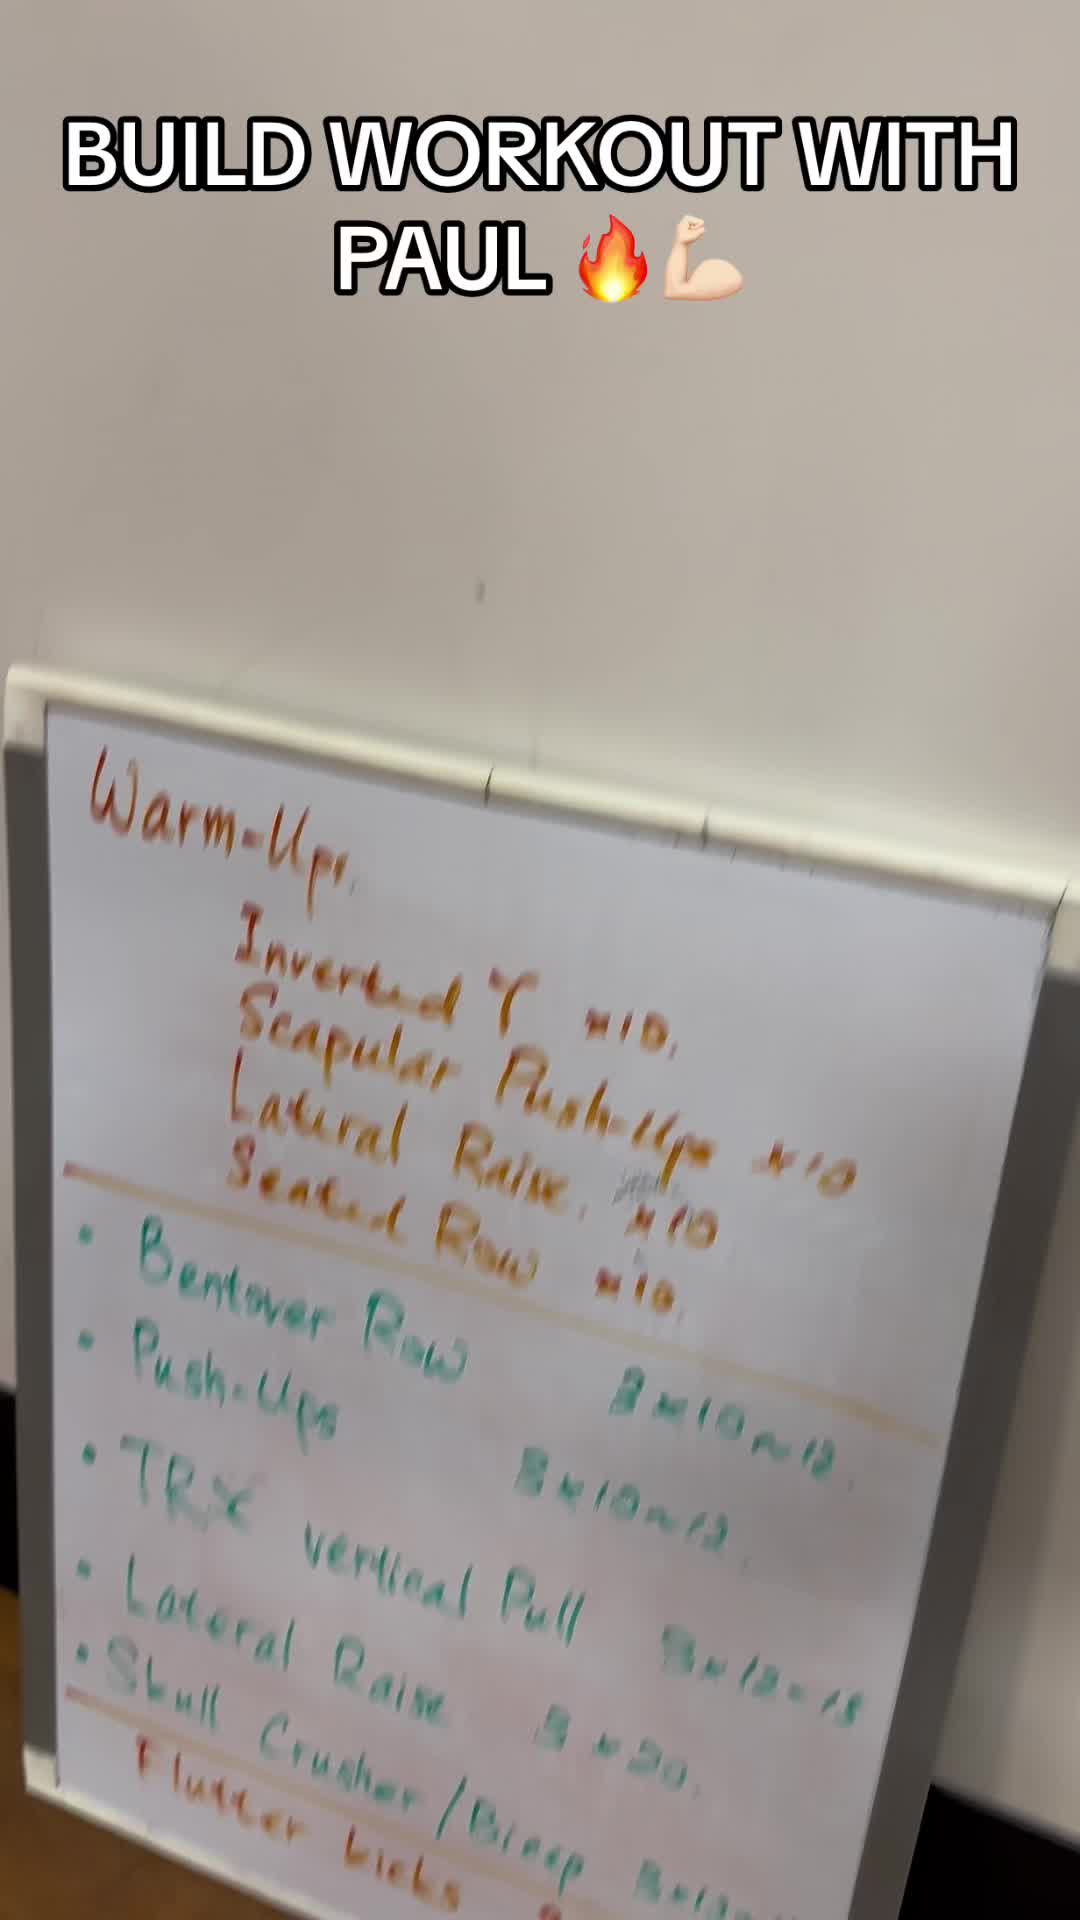 BUILD WORKOUT WITH
PAUL 🔥💪🏻
Warm-Ups.
Inverted Y x10.
Scapular Push-Ups x10
Lateral Raise. x10
Seated Row x10.
• Bentover Row 3x10~12.
• Push-Ups 3x10~12.
• TRX vertical Pull 3x12~15
• Lateral Raise 3x20.
• Skull Crusher/Bicep
Flutter kicks